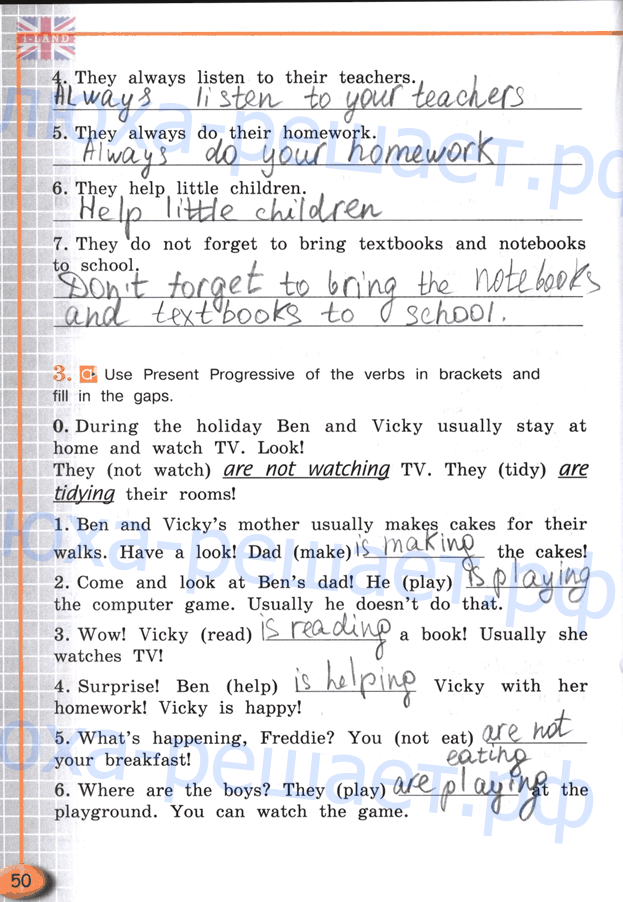 i-LAND
4. They always listen to their teachers.
Always listen to your teachers
5. They always do their homework.
Always do your homework
6. They help little children.
Help little children
7. They do not forget to bring textbooks and notebooks
to school.
Don't forget to bring the notebooks
and textbooks to school.
3. Use Present Progressive of the verbs in brackets and
fill in the gaps.
0. During the holiday Ben and Vicky usually stay at
home and watch TV. Look!
They (not watch) are not watching TV. They (tidy) are
tidying their rooms!
1. Ben and Vicky's mother usually makes cakes for their
walks. Have a look! Dad (make) is making the cakes!
2. Come and look at Ben's dad! He (play) is playing
the computer game. Usually he doesn't do that.
3. Wow! Vicky (read) is reading a book! Usually she
watches TV!
4. Surprise! Ben (help) is helping Vicky with her
homework! Vicky is happy!
5. What's happening, Freddie? You (not eat) are not
your breakfast! eating
6. Where are the boys? They (play) are playing at the
playground. You can watch the game.
50
люха-решает.рф
люха-решает.рф
юха-решает.рф